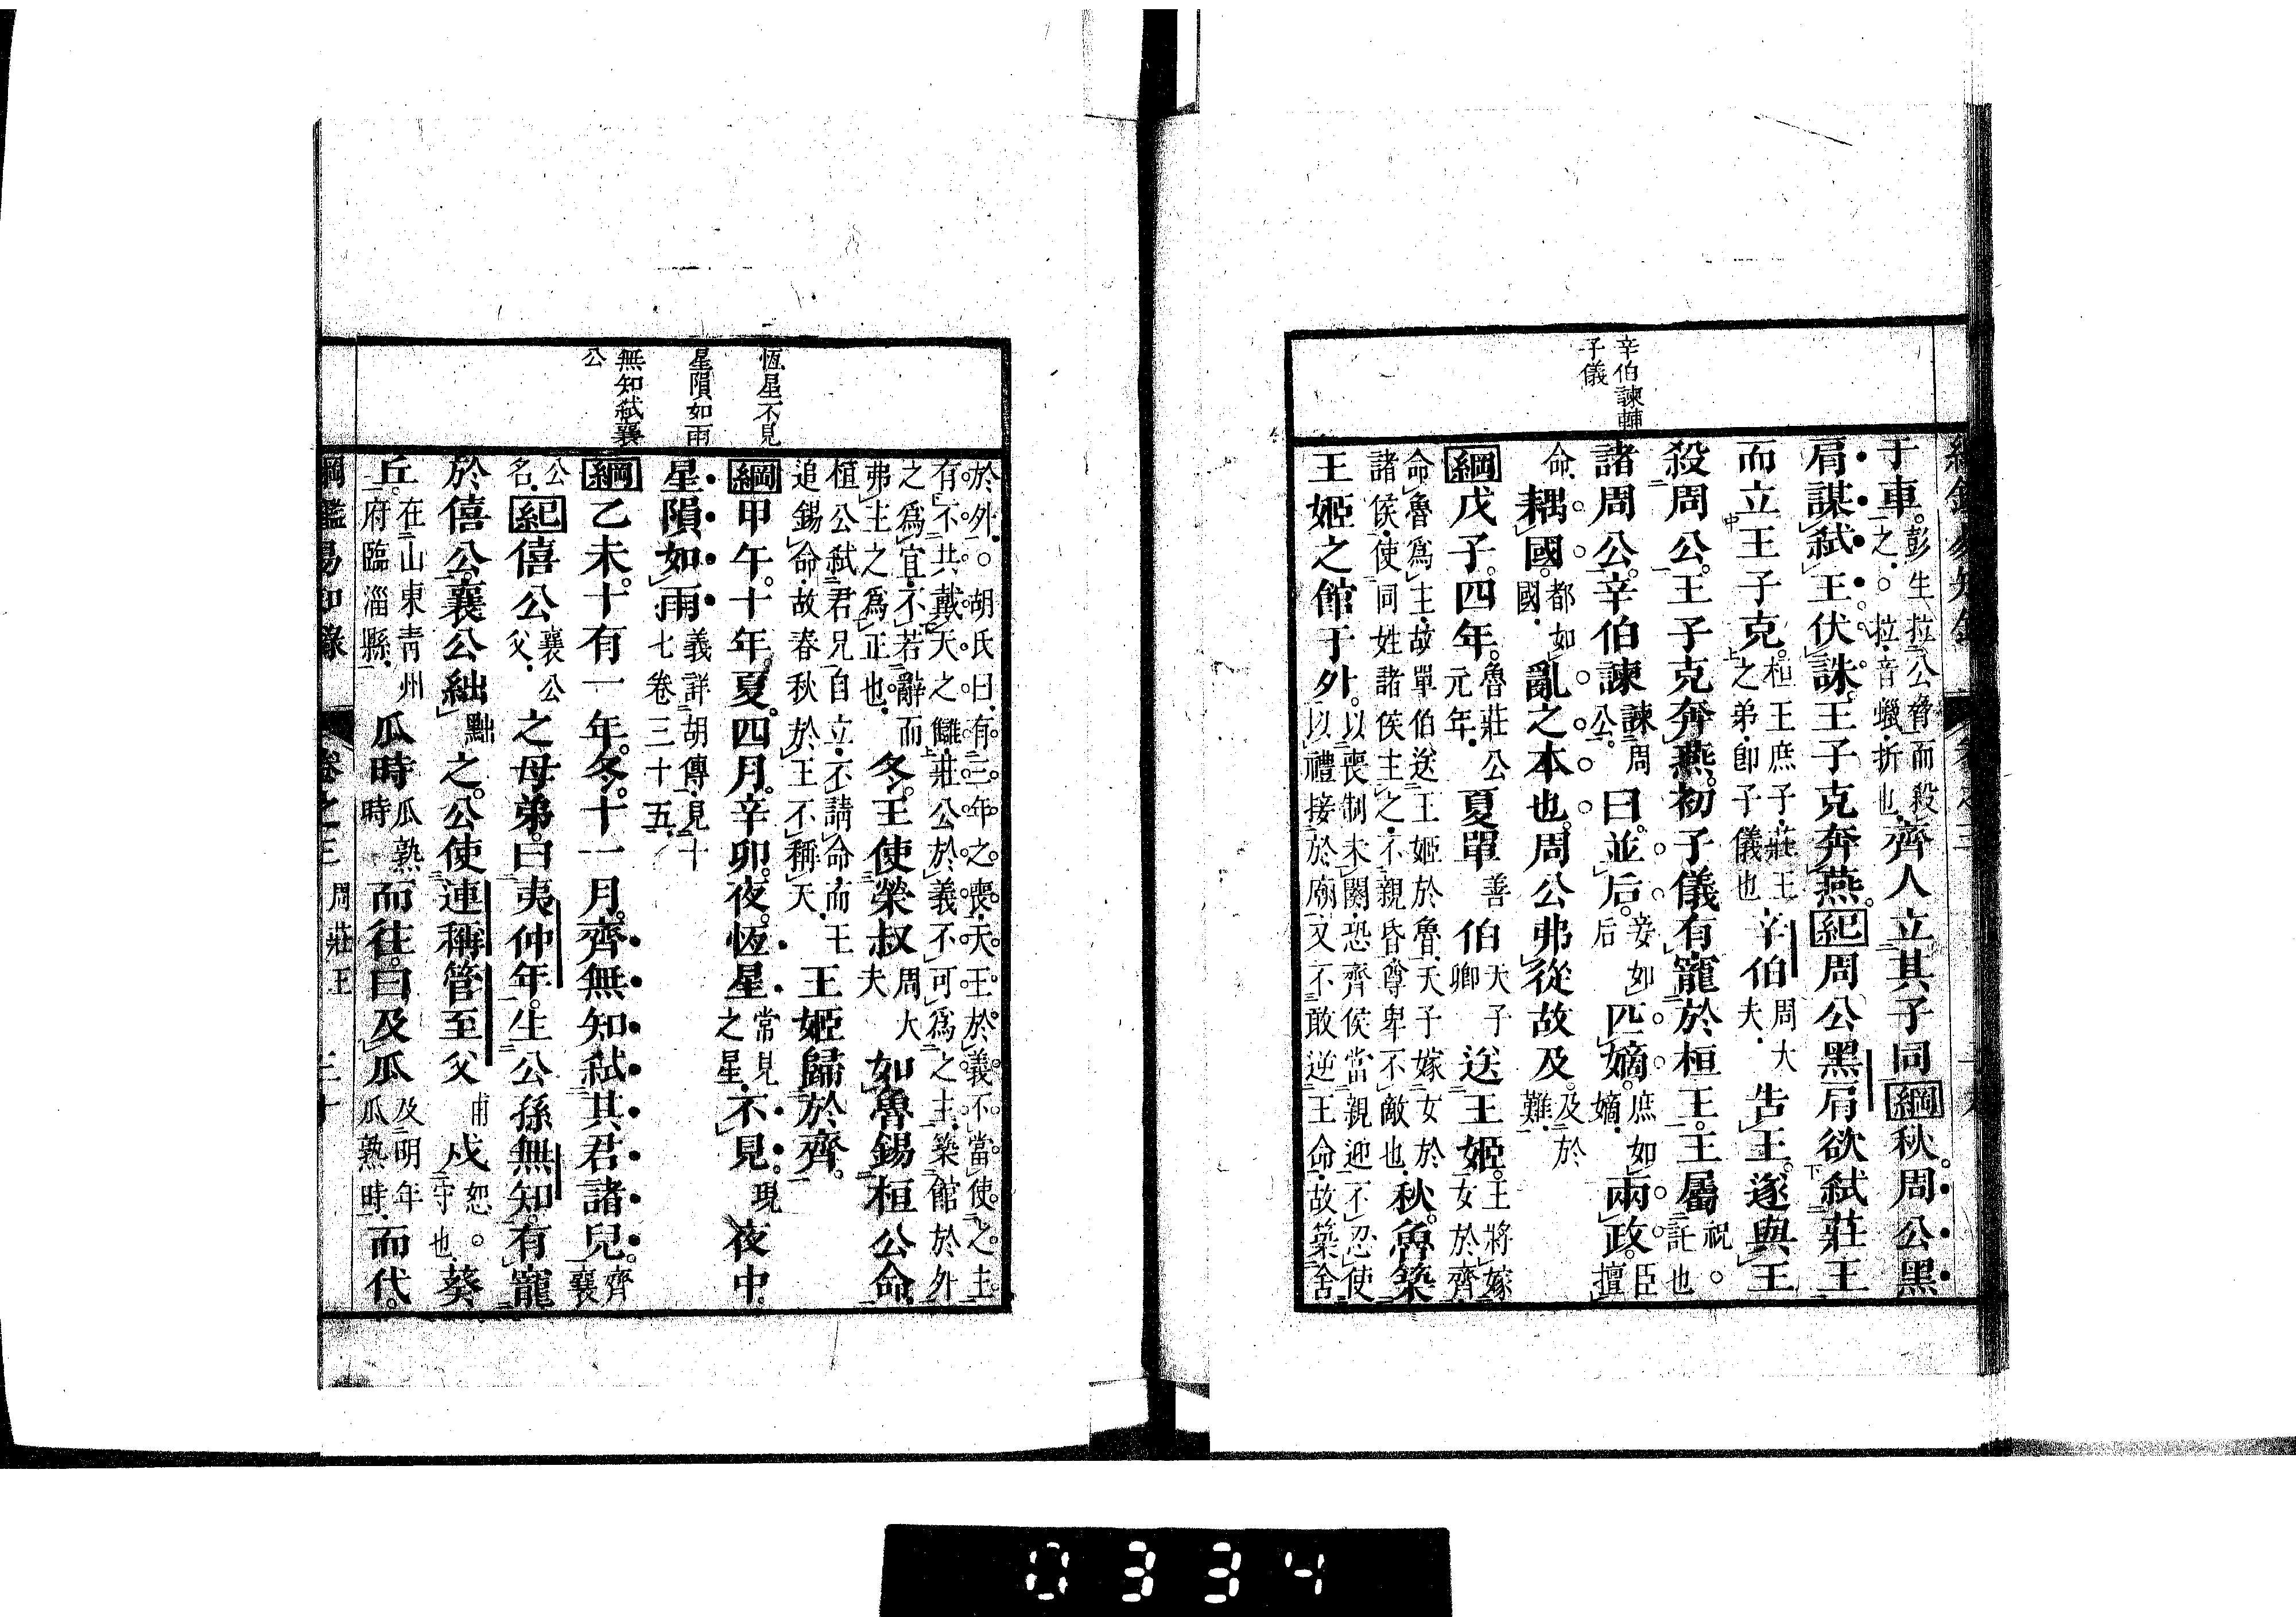 辛伯諫轉
子儀
于車彭生拉公脅而殺之○拉音蠟折也齊人立其子同綱秋周公黑
肩謀弑王伏誅王子克奔燕紀周公黑肩欲弑莊王
而立王子克桓王庶子莊王之弟卽子儀也辛伯周大夫告王遂與王
殺周公王子克奔燕初子儀有寵於桓王王屬祝○託也
諸周公辛伯諫諫周公曰並后妾如后匹嫡庶如嫡兩政臣擅
命耦國都如國亂之本也周公弗從故及及於難
綱戊子四年魯莊公元年夏單善伯天子卿送王姬王將嫁女於齊
命魯爲主故單伯送王姬於魯天子嫁女於諸侯使同姓諸侯主之不親昏尊卑不敵也秋魯築
王姬之館于外以喪制未闋恐齊侯當親迎不忍使以禮接於廟又不敢逆王命故築舍
恆星不見
星隕如雨
無知弑襄
公
於外○胡氏曰有三年之喪天王於義不當使之主有不共戴天之讎莊公於義不可爲之主築館於外
之爲宜不若辭而弗主之爲正也冬王使榮叔周大夫如魯錫桓公命
桓公弑君兄自立不請命而王追錫命故春秋於王不稱天王姬歸於齊
綱甲午十年夏四月辛卯夜恆星常見之星不見現夜中
星隕如雨義詳胡傳見十七卷三十五
綱乙未十有一年冬十一月齊無知弑其君諸兒齊襄
公名紀僖公襄公父之母弟曰夷仲年生公孫無知有寵
於僖公襄公絀黜之公使連稱管至父甫戍恕○守也葵
丘在山東青州府臨淄縣瓜時瓜熟時而往曰及瓜及明年瓜熟時而代
綱鑑易知錄 卷之三 周莊王
0334